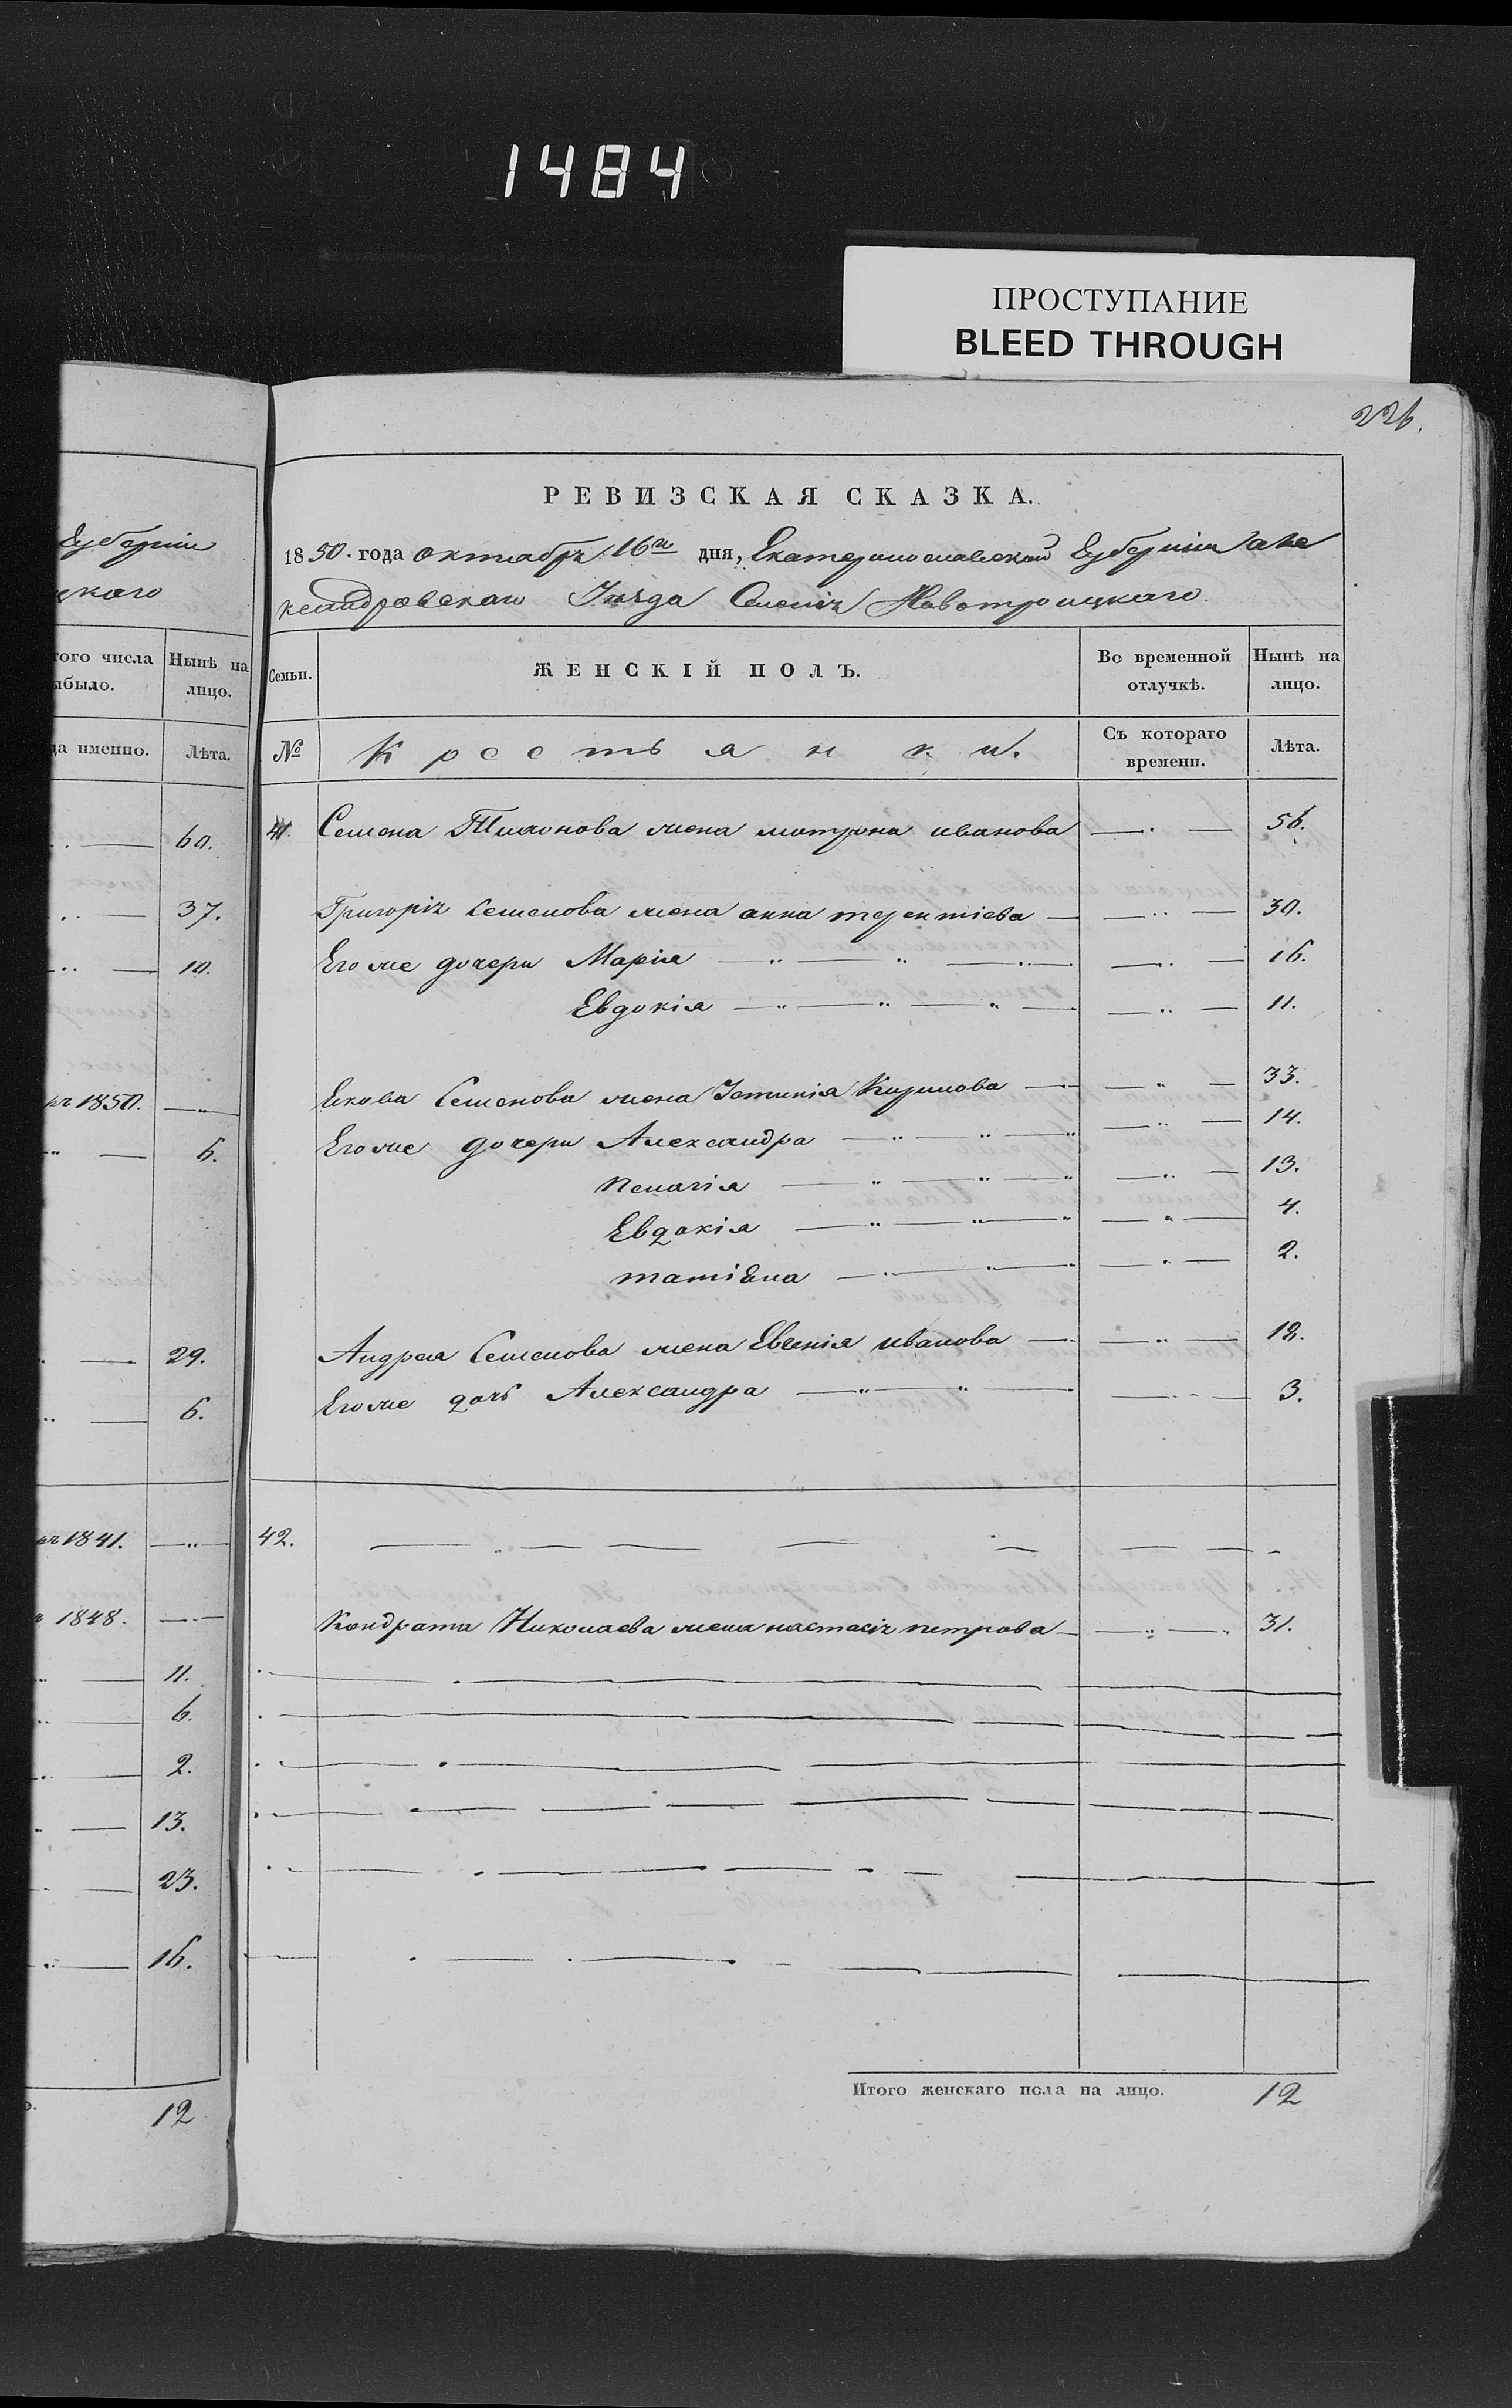 1484
ПРОСТУПАНИЕ
BLEED THROUGH
226.
Губернии
цкаго
того числа
ыбыло.
Нынѣ на
лицо.
да именно.
Лѣта.
60.
37.
10.
1850.
6.
29.
6.
1841.
1848.
11.
6.
2.
13.
23.
16.
12
РЕВИЗСКАЯ СКАЗКА.
1850. года октября 16го дня, Екатеринославской Губернии Але
ксандровскаго Уезда Селенія Новотроицкаго.
Семьи.
ЖЕНСКІЙ ПОЛЪ.
Во временной
отлучкѣ.
Нынѣ на
лицо.
№
Крестьянки.
Съ котораго
времени.
Лѣта.
41. Семена Тихонова жена матрона иванова 56.
Григорія Семенова жена анна терентіева 30.
Его же дочери Марія 16.
Евдокія 11.
Екова Семенова жена Устинія Кирилова 33.
Его же дочери Александра 14.
Пелагія 13.
Евдокія 4.
татіяна 2.
Андрея Семенова жена Евгенія иванова
Его же дочь Александра 3.
42.
Кондрата Николаева жена настасія петрова 31.
Итого женскаго пола на лицо. 12